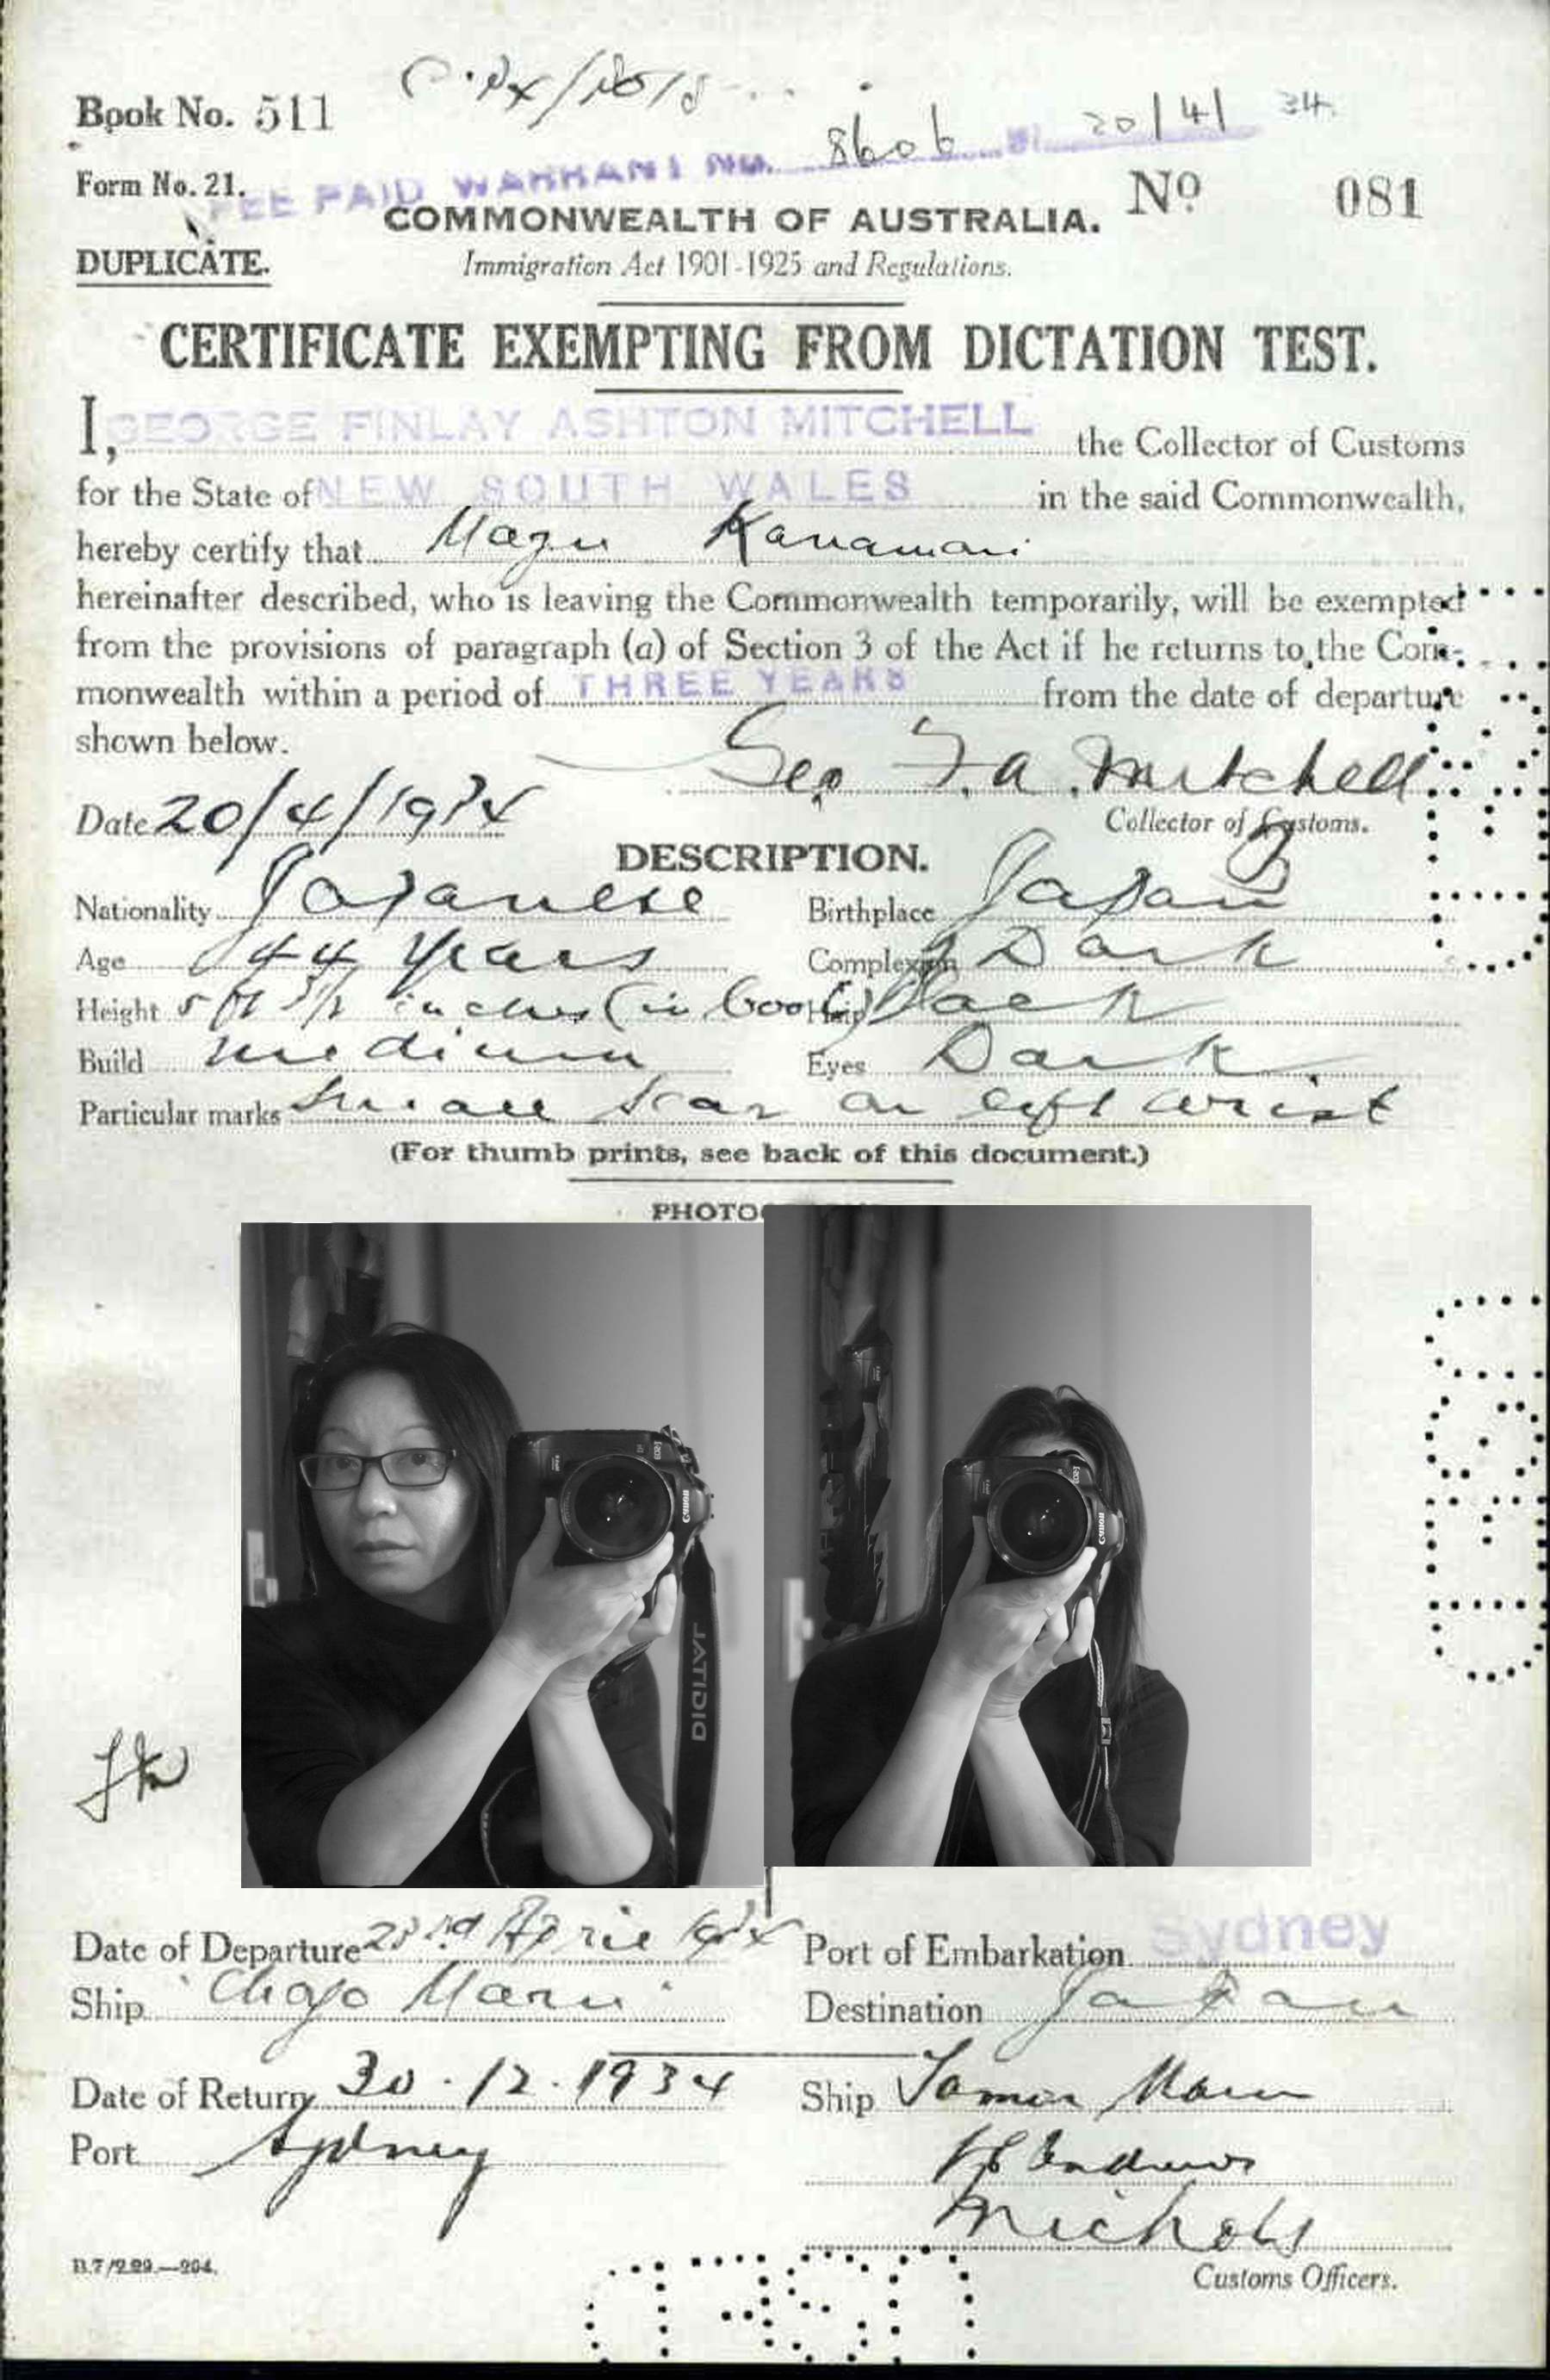 Book No. 511
8606 20/4/34.
Form No. 21.
FEE PAID WARRANT NO.
COMMONWEALTH OF AUSTRALIA. No 081
DUPLICATE. Immigration Act 1901-1925 and Regulations.
CERTIFICATE EXEMPTING FROM DICTATION TEST.
I, GEORGE FINLAY ASHTON MITCHELL the Collector of Customs
for the State of NEW SOUTH WALES in the said Commonwealth,
hereby certify that Magu Kanamori
hereinafter described, who is leaving the Commonwealth temporarily, will be exempted
from the provisions of paragraph (a) of Section 3 of the Act if he returns to the Com-
monwealth within a period of THREE YEARS from the date of departure
shown below.
Geo F.A. Mitchell
Date 20/4/1934 Collector of Customs.
DESCRIPTION.
Nationality Japanese Birthplace Japan
Age 44 years Complexion Dark
Height 5 ft 3½ inches (in boots) Hair Black
Build medium Eyes Dark
Particular marks Small scar on left wrist
(For thumb prints, see back of this document.)
Canon
DIGITAL
Canon
Date of Departure 23rd April 1934 Port of Embarkation Sydney
Ship Maru Destination Japan
Date of Return 30.12.1934 Ship Maru
Port Sydney
Nichols
B.7/2.29.—204. Customs Officers.